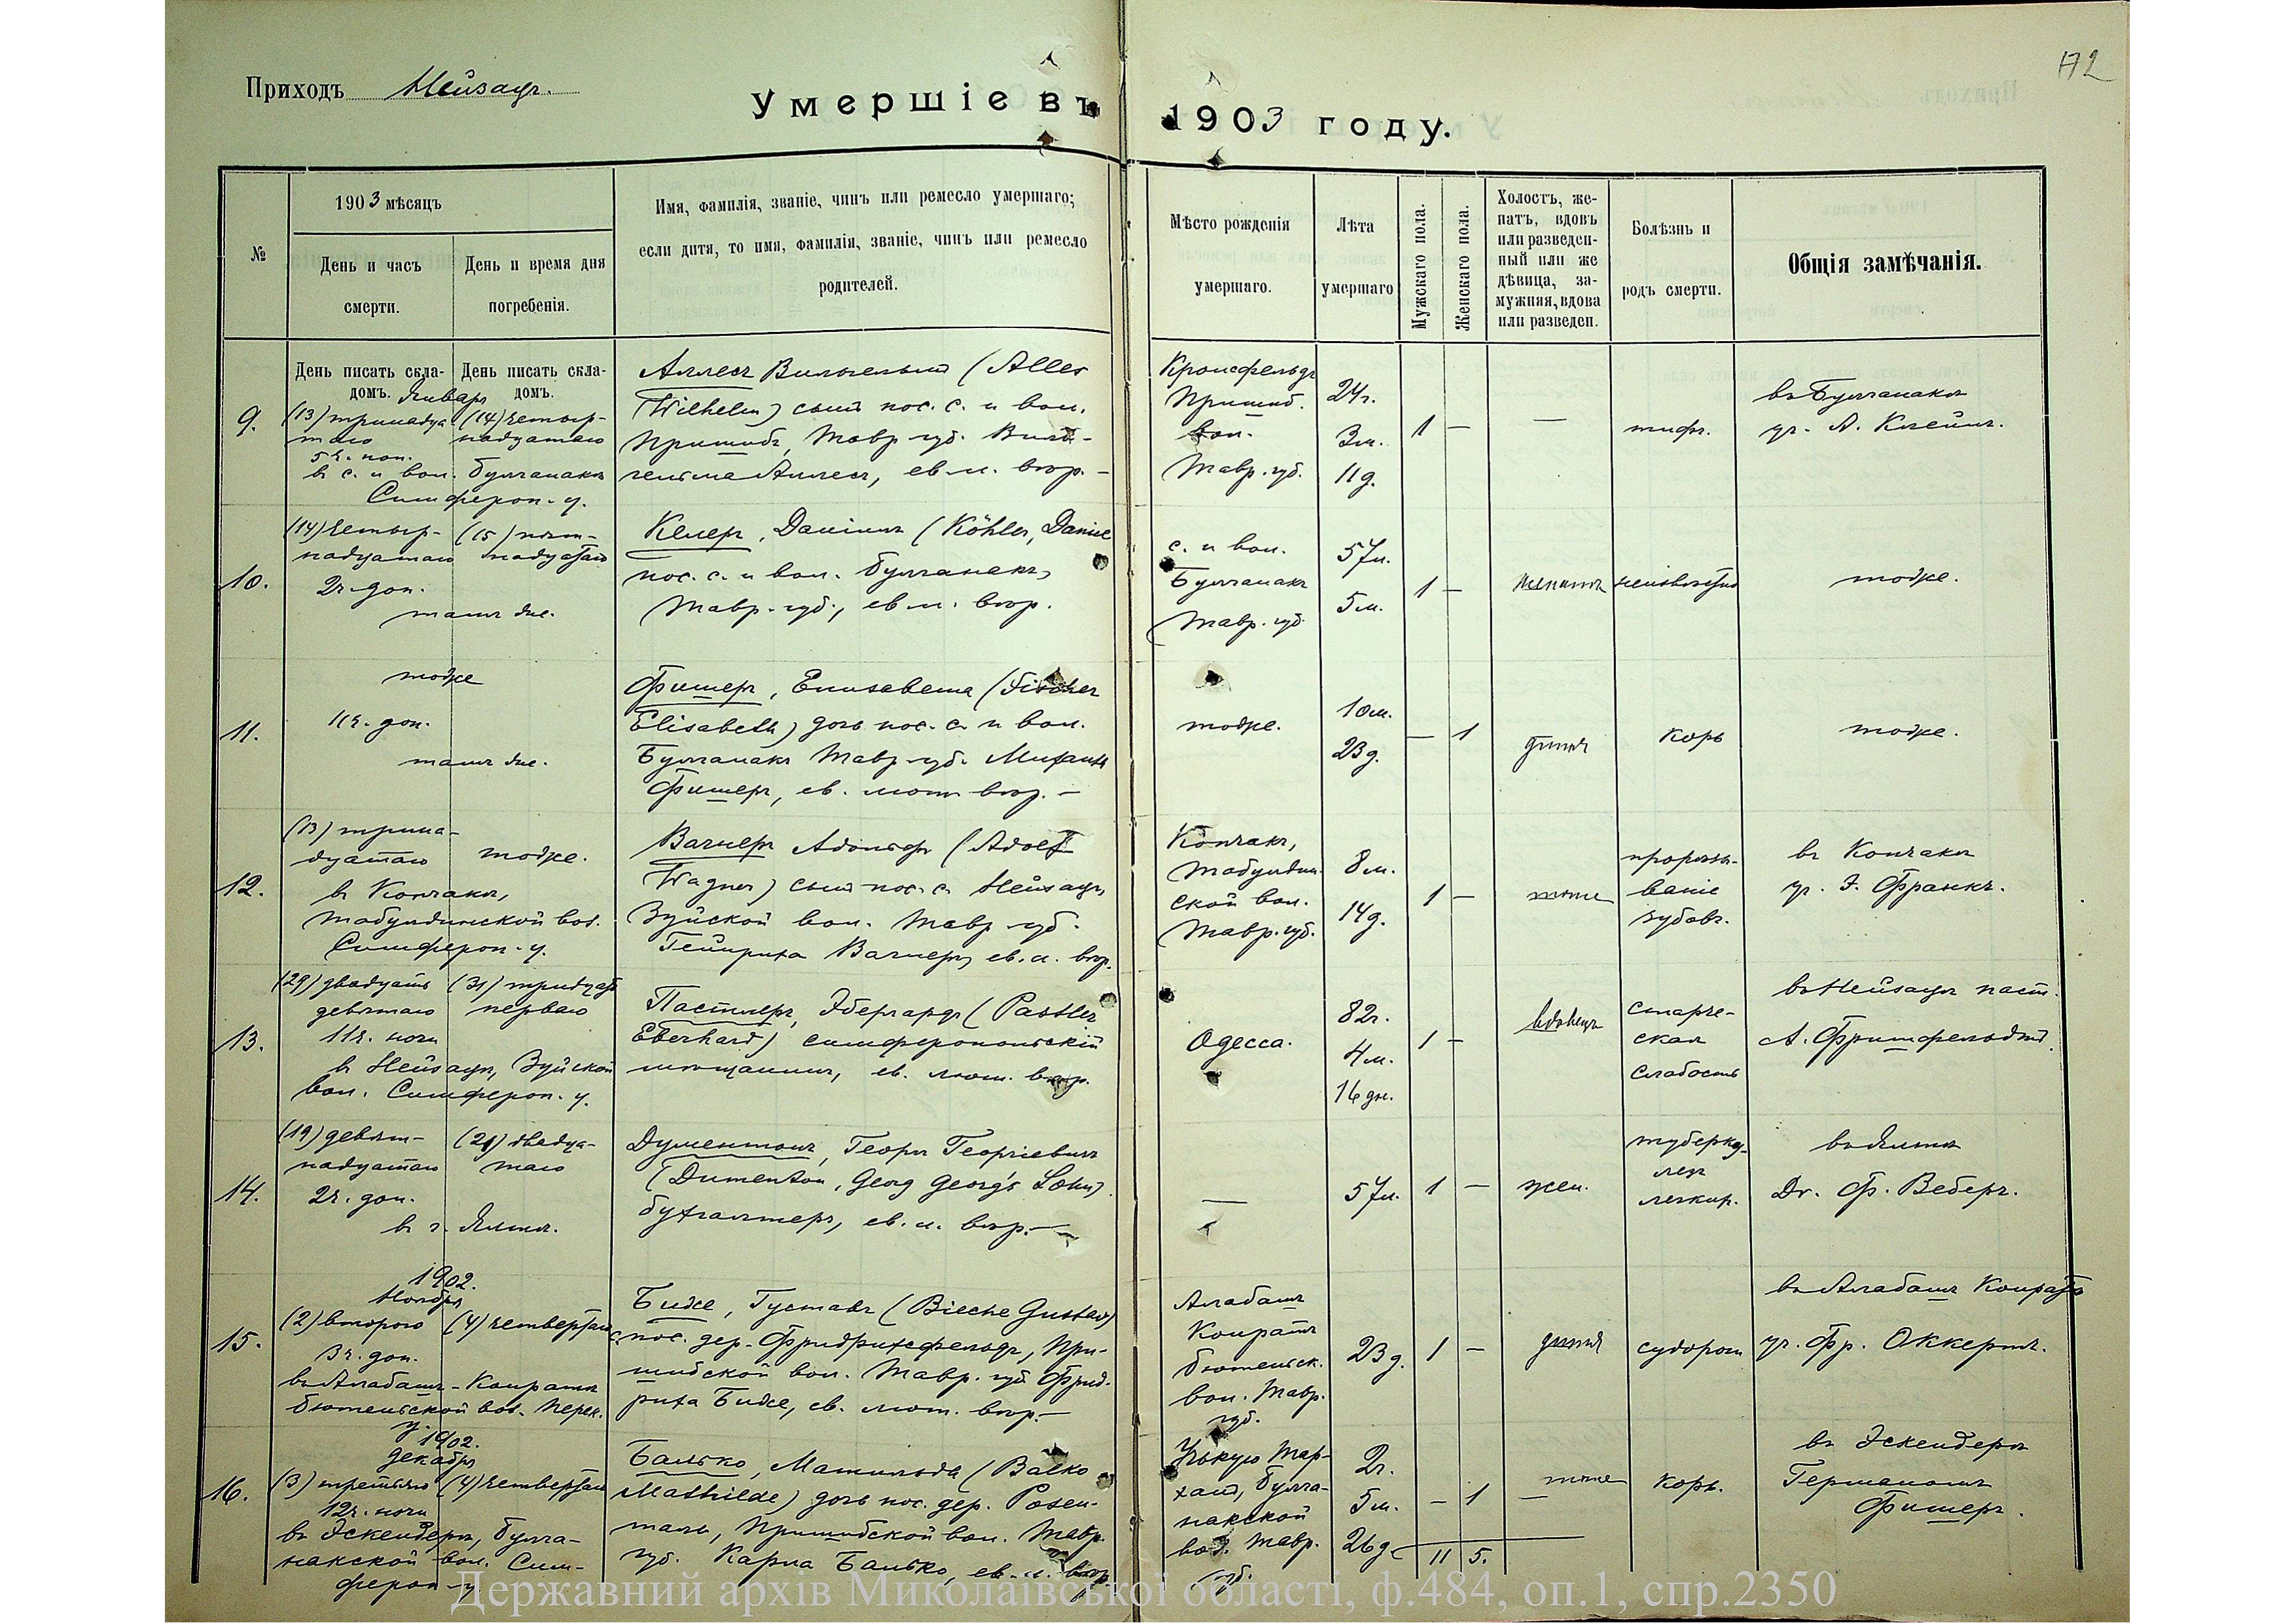 172
Приходъ Нейзацъ.
Умершіе въ 1903 году.
№
1903 мѣсяцъ
День и часъ
смерти.
День и время дня
погребенія.
Имя, фамилія, званіе, чинъ или ремесло умершаго;
если дитя, то имя, фамилія, званіе, чинъ или ремесло
родителей.
Мѣсто рожденія
умершаго.
Лѣта
умершаго
Мужскаго пола.
Женскаго пола.
Холостъ, же-
натъ, вдовъ
или разведен-
ный или же
дѣвица, за-
мужняя, вдова
или разведен.
Болѣзнь и
родъ смерти.
Общія замѣчанія.
День писать скла-
домъ.
День писать скла-
домъ.
Января
9.
(13) тринадца
таго
5 ч. поп.
(14) четыр-
надцатаго
в с. и вол. Булганакъ
Симфероп. у.
Аллесъ Вильгельмъ (Alles
Wilhelm) сынъ пос. с. и вол.
Пришибъ, Тавр. губ. Виль-
гельма Аллесъ, ев. л. вѣр. –
Кронсфельдъ
Пришиб.
вол.
Тавр. губ.
24 г.
3 м.
11 д.
1 – —
тифъ.
въ Булганакѣ
уч. А. Клейнъ.
10.
(14) четыр-
надцатаго
2 ч. поп.
(15) пят-
надцатаго
тамъ же.
Келеръ, Даніилъ (Köhler, Daniel
пос. с. и вол. Булганакъ,
Тавр. губ., ев. л. вѣр.
с. и вол.
Булганакъ
Тавр. губ.
57 л.
5 м.
1 –
женатъ
неизвѣстно
тоже.
11.
тоже
11 ч. поп.
тамъ же.
Фишеръ, Елизавета (Fischer
Elisabeth) дочь пос. с. и вол.
Булганакъ Тавр. губ. Михаила
Фишеръ, ев. лют. вѣр. –
тоже.
10 м.
23 д.
– 1
дитя
корь
тоже.
12.
(13) трина-
дцатаго
тоже.
в Кончакъ,
Табулдинской вол.
Симфероп. у.
Вагнеръ Адольфъ (Adolf
Wagner) сынъ пос. с. Нейзацъ,
Зуйской вол. Тавр. губ.
Гейнриха Вагнеръ, ев. л. вѣр.
Кончакъ,
Табулдин-
ской вол.
Тавр. губ.
8 м.
14 д.
1 –
тоже
прорѣзы-
ваніе
зубовъ.
въ Кончакѣ
уч. Э. Франкъ.
13.
(29) двадцать
девятаго
11 ч. ночи
(31) тридцать
перваго
в Нейзацъ, Зуйской
вол. Симфероп. у.
Пастлеръ, Эбергардъ (Pastler
Eberhard) симферопольскій
мѣщанинъ, ев. лют. вѣр.
Одесса.
82 г.
4 м.
16 дн.
1 –
вдовецъ
старче-
ская
слабость
въ Нейзацъ паст.
А. Фришфельдтъ.
14.
(19) девят-
надцатаго
2 ч. поп.
(20) двадца-
таго
в г. Ялтѣ.
Дументонъ, Георгъ Георгіевичъ
(Dumenton, Georg Georg's Sohn)
бухгалтеръ, ев. л. вѣр. –
—
57 л.
1 –
жен.
туберку-
лезъ
легкир.
въ Ялтѣ
Dr. Ф. Веберъ.
15.
1902.
Ноября
(2) второго
3 ч. поп.
(4) четвертаго
въ Алабашъ-Конратъ
Бютеньской вол. Перек.
у.
Бихе, Густавъ (Bieche Gustav)
пос. дер. Фридрихсфельдъ, При-
шибской вол. Тавр. губ. Фрид-
риха Бихе, ев. лют. вѣр. –
Алабашъ
Конратъ
Бютеньск.
вол. Тавр.
губ.
23 д.
1 –
дитя
судороги
въ Алабашъ Конратъ
уч. Фр. Оккертъ.
16.
1902.
Декабря
(3) третьяго
12 ч. ночи
(4) четвертаго
въ Эскендеръ, Булга-
накской вол. Сим-
фероп. у.
Балько, Матильда (Balko
Mathilde) дочь пос. дер. Розен-
таль, Пришибской вол. Тавр.
губ. Карла Балько, ев. л. вѣр.
Тар-
ханъ, Булга-
накской
вол. Тавр.
губ.
2 г.
5 м.
26 д.
– 1
тоже
корь.
въ Эскендеръ
Германомъ
Фишеръ.
11 5.
Державний архів Миколаївської області, ф.484, оп.1, спр.2350